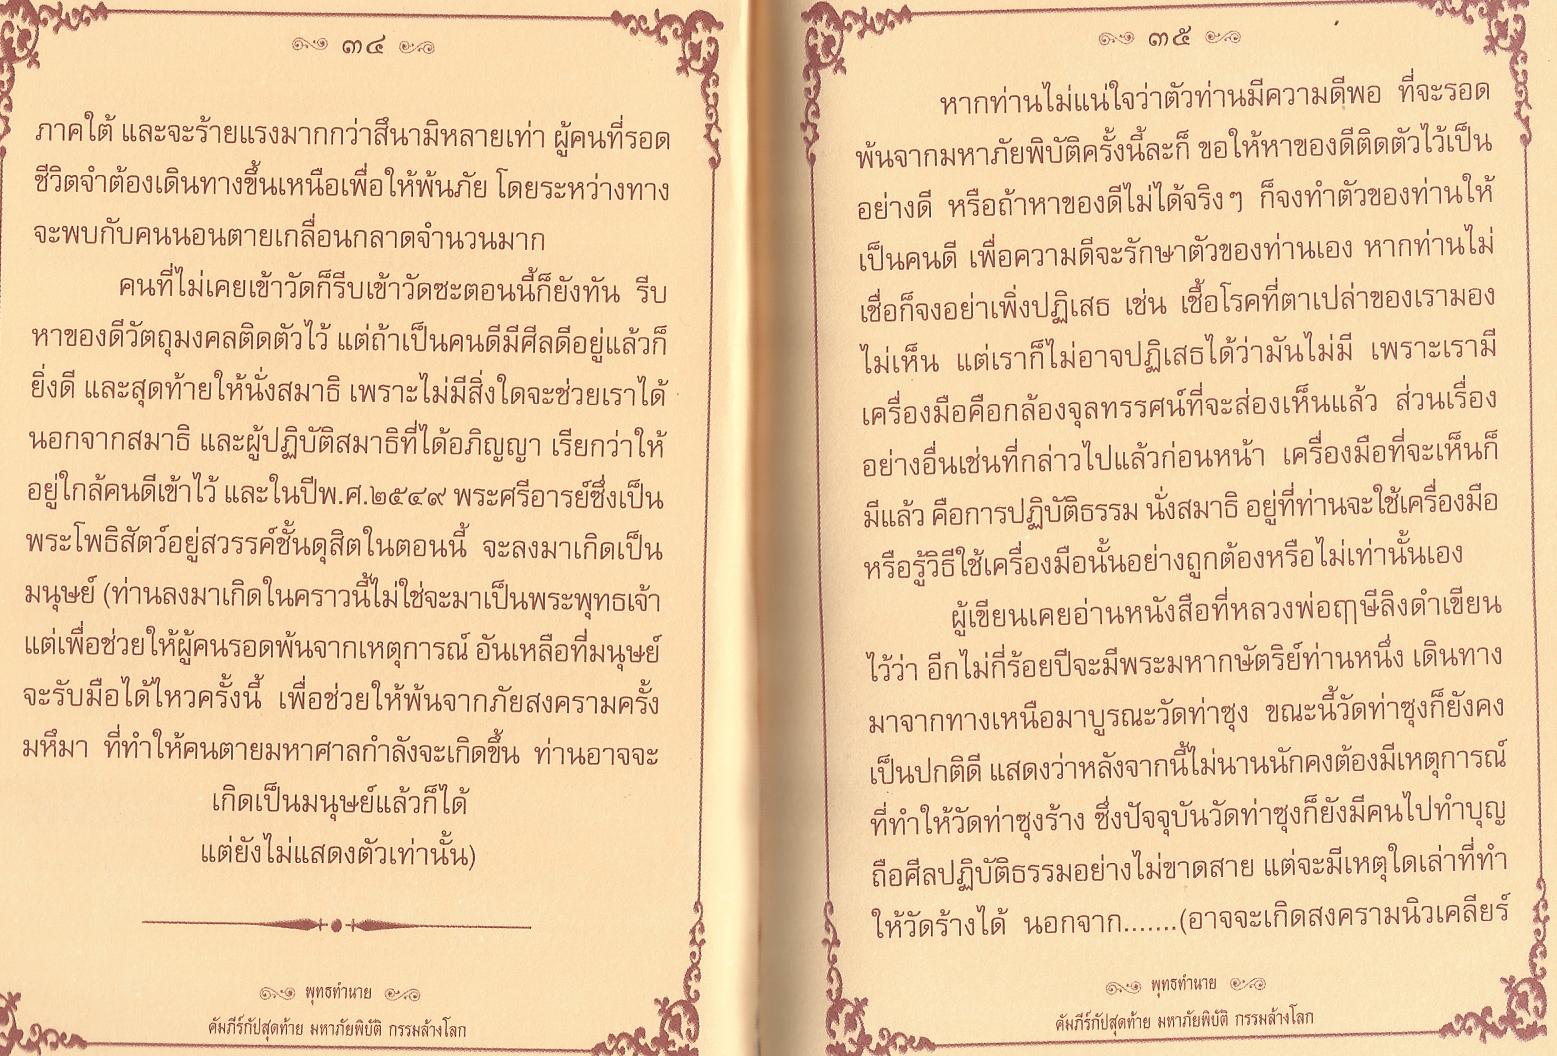 ๓๔
ภาคใต้ และจะร้ายแรงมากกว่าสึนามิหลายเท่า ผู้คนที่รอด
ชีวิตจำต้องเดินทางขึ้นเหนือเพื่อให้พ้นภัย โดยระหว่างทาง
จะพบกับคนนอนตายเกลื่อนกลาดจำนวนมาก
คนที่ไม่เคยเข้าวัดก็รีบเข้าวัดซะตอนนี้ก็ยังทัน รีบ
หาของดีวัตถุมงคลติดตัวไว้ แต่ถ้าเป็นคนดีมีศีลดีอยู่แล้วก็
ยิ่งดี และสุดท้ายให้นั่งสมาธิ เพราะไม่มีสิ่งใดจะช่วยเราได้
นอกจากสมาธิ และผู้ปฏิบัติสมาธิที่ได้อภิญญา เรียกว่าให้
อยู่ใกล้คนดีเข้าไว้ และในปีพ.ศ.๒๕๔๙ พระศรีอารย์ซึ่งเป็น
พระโพธิสัตว์อยู่สวรรค์ชั้นดุสิตในตอนนี้ จะลงมาเกิดเป็น
มนุษย์ (ท่านลงมาเกิดในคราวนี้ไม่ใช่จะมาเป็นพระพุทธเจ้า
แต่เพื่อช่วยให้ผู้คนรอดพ้นจากเหตุการณ์ อันเหลือที่มนุษย์
จะรับมือได้ไหวครั้งนี้ เพื่อช่วยให้พ้นจากภัยสงครามครั้ง
มหึมา ที่ทำให้คนตายมหาศาลกำลังจะเกิดขึ้น ท่านอาจจะ
เกิดเป็นมนุษย์แล้วก็ได้
แต่ยังไม่แสดงตัวเท่านั้น)
พุทธทำนาย
คัมภีร์กัปสุดท้าย มหาภัยพิบัติ กรรมล้างโลก
๓๕
หากท่านไม่แน่ใจว่าตัวท่านมีความดีพอ ที่จะรอด
พ้นจากมหาภัยพิบัติครั้งนี้ละก็ ขอให้หาของดีติดตัวไว้เป็น
อย่างดี หรือถ้าหาของดีไม่ได้จริงๆ ก็จงทำตัวของท่านให้
เป็นคนดี เพื่อความดีจะรักษาตัวของท่านเอง หากท่านไม่
เชื่อก็จงอย่าเพิ่งปฏิเสธ เช่น เชื้อโรคที่ตาเปล่าของเรามอง
ไม่เห็น แต่เราก็ไม่อาจปฏิเสธได้ว่ามันไม่มี เพราะเรามี
เครื่องมือคือกล้องจุลทรรศน์ที่จะส่องเห็นแล้ว ส่วนเรื่อง
อย่างอื่นเช่นที่กล่าวไปแล้วก่อนหน้า เครื่องมือที่จะเห็นก็
มีแล้ว คือการปฏิบัติธรรม นั่งสมาธิ อยู่ที่ท่านจะใช้เครื่องมือ
หรือรู้วิธีใช้เครื่องมือนั้นอย่างถูกต้องหรือไม่เท่านั้นเอง
ผู้เขียนเคยอ่านหนังสือที่หลวงพ่อฤๅษีลิงดำเขียน
ไว้ว่า อีกไม่กี่ร้อยปีจะมีพระมหากษัตริย์ท่านหนึ่ง เดินทาง
มาจากทางเหนือมาบูรณะวัดท่าซุง ขณะนี้วัดท่าซุงก็ยังคง
เป็นปกติดี แสดงว่าหลังจากนี้ไม่นานนักคงต้องมีเหตุการณ์
ที่ทำให้วัดท่าซุงร้าง ซึ่งปัจจุบันวัดท่าซุงก็ยังมีคนไปทำบุญ
ถือศีลปฏิบัติธรรมอย่างไม่ขาดสาย แต่จะมีเหตุใดเล่าที่ทำ
ให้วัดร้างได้ นอกจาก.......(อาจจะเกิดสงครามนิวเคลียร์
พุทธทำนาย
คัมภีร์กัปสุดท้าย มหาภัยพิบัติ กรรมล้างโลก